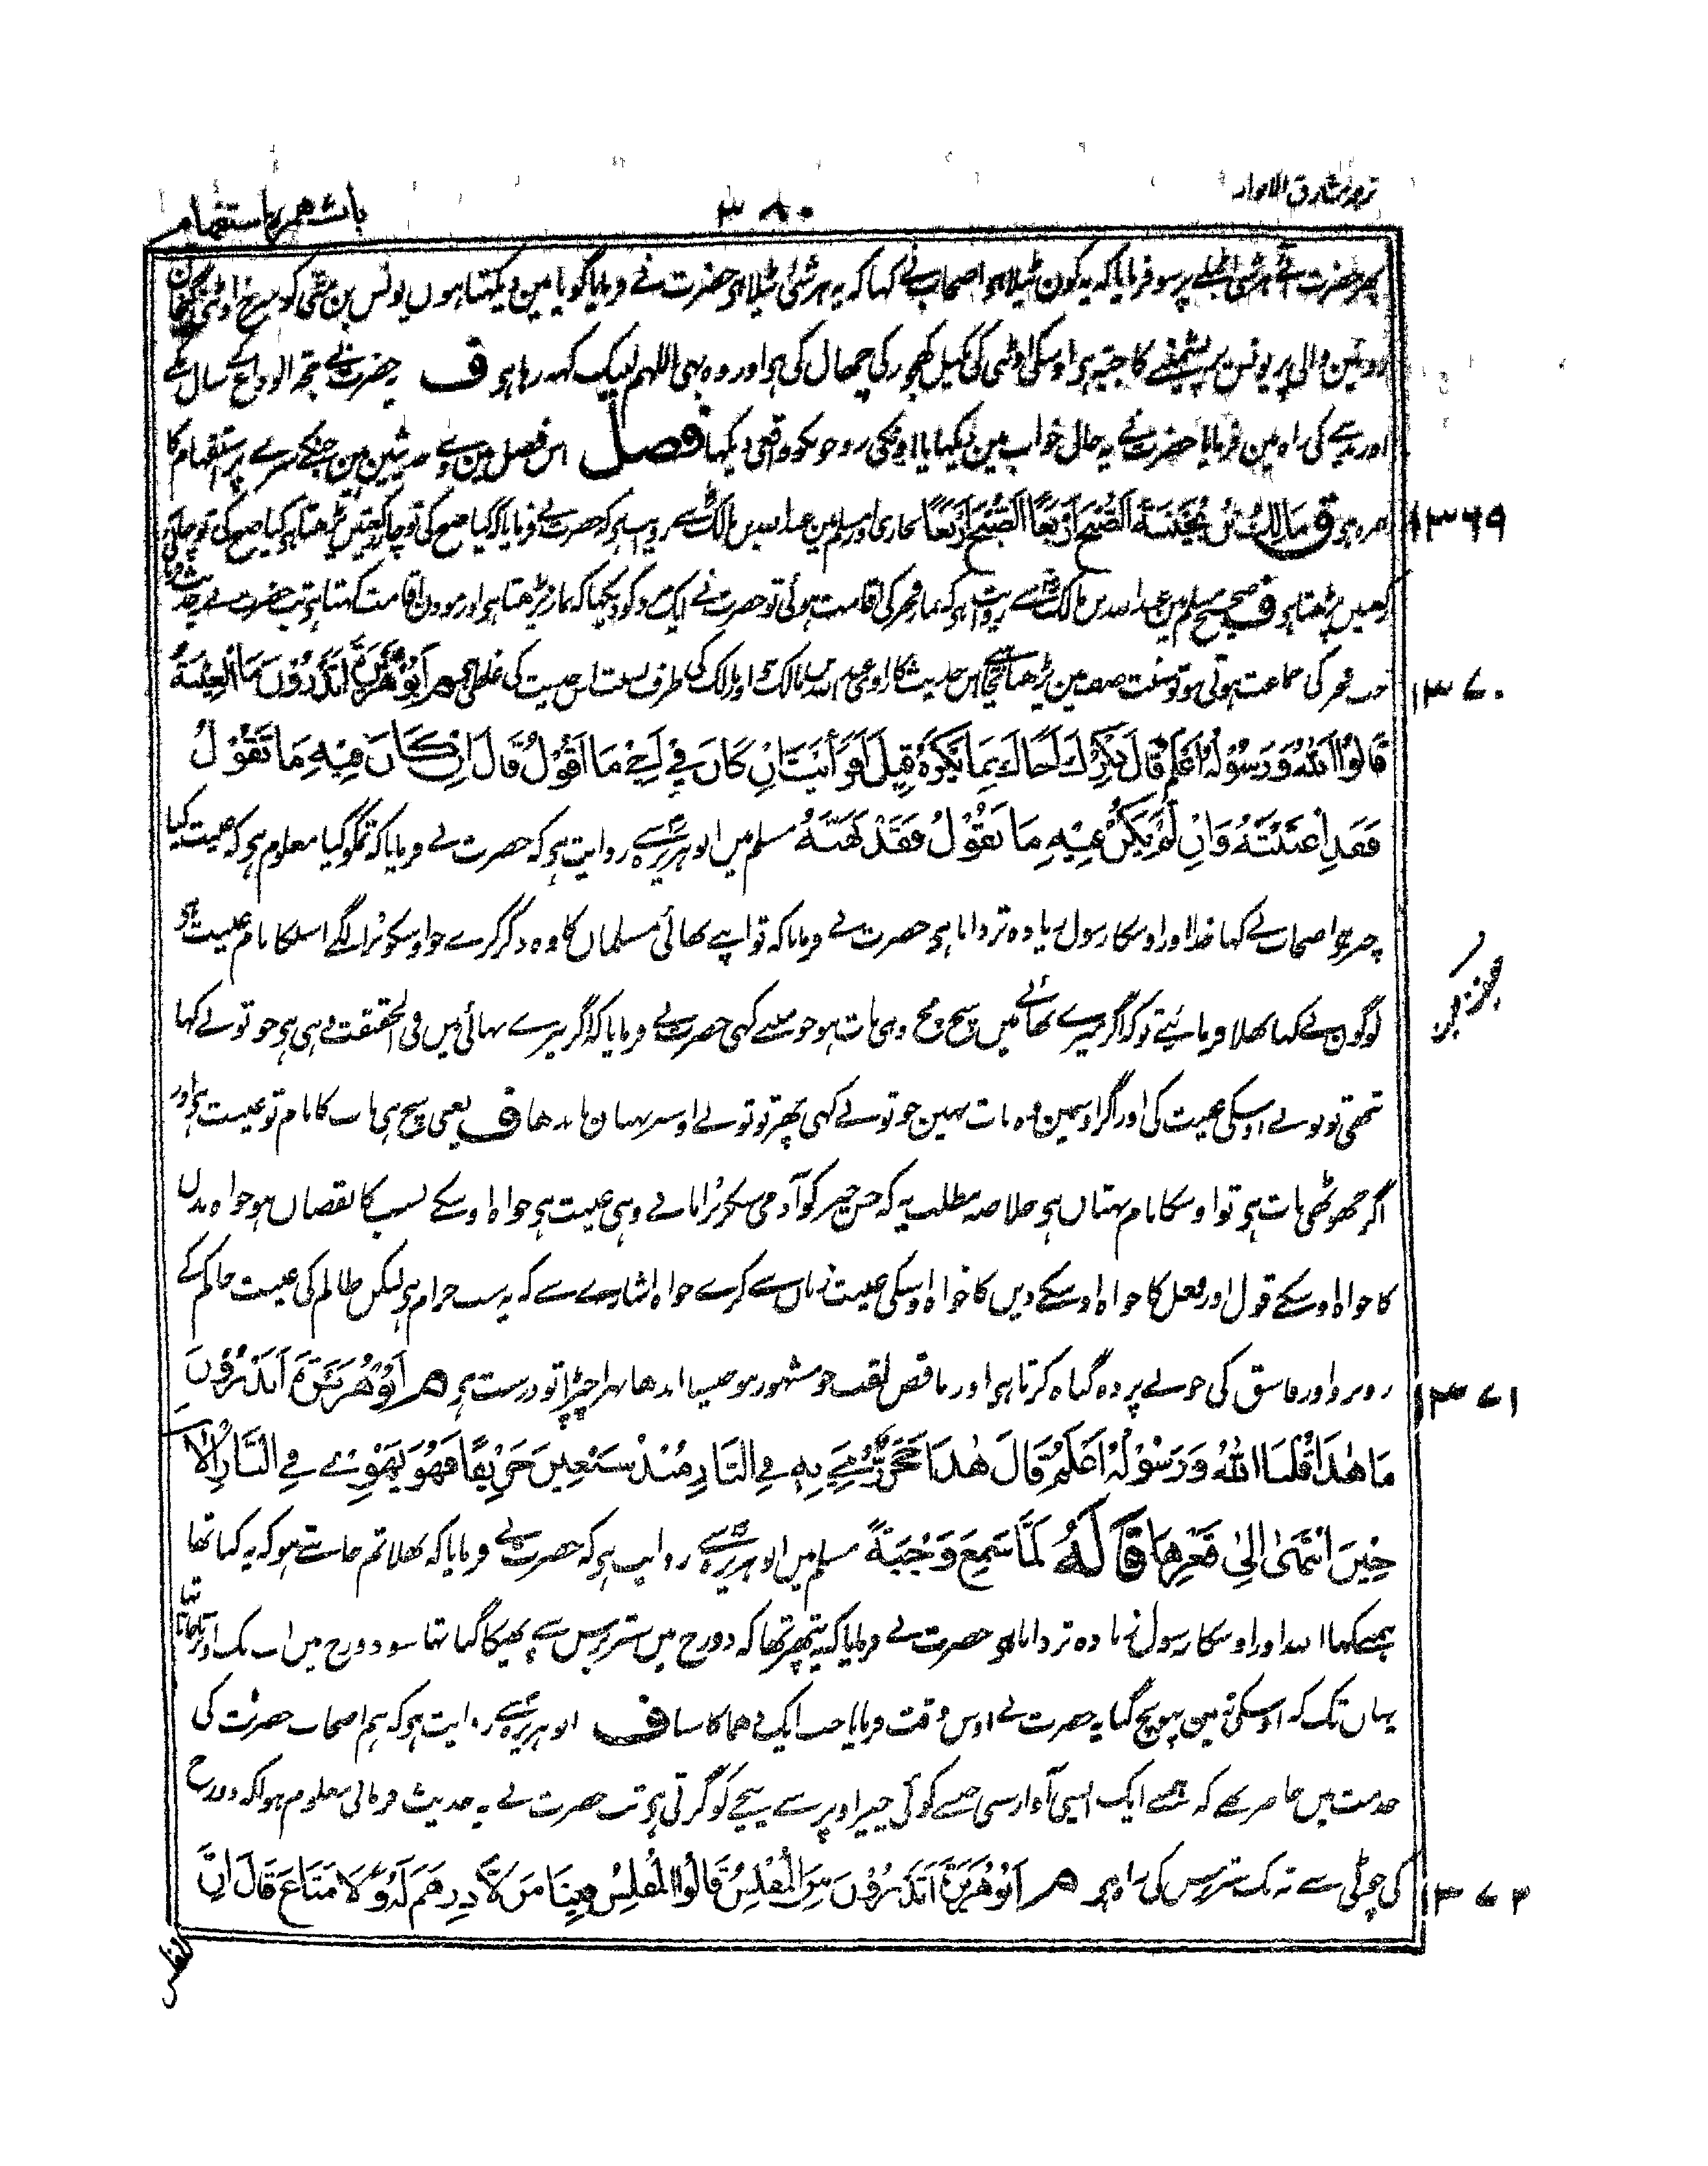 ترجمہ مشارق الانوار
۳۸۰
باب ہمزہ استفہام
پھر حضرت نے ہرشی ٹیلے پر سو فرمایا کہ یہ کون ٹیلا ہی اصحاب نے کہا کہ یہ ہرشی ٹیلا ہی حضرت نے فرمایا گویا مین دیکھتا ہون یونس بن متی کو سرخ اوٹنی
والی پر یونس پر پشمینے کا جبہ ہی اوسکی اوٹنی کی نکیل کھجور کی چھال کی ہی اور وہ بھی اللہم لبیک کہہ رہا ہی ف یہ حضرت نے حجۃ الوداع کے سال کے
اور مدینے کی راہ مین فرمایا حضرت نے یہ حال خواب مین دیکھا یا اونکی روحونکو واقعی دیکھا فصل اس فصل مین وے حدیثین ہین جنکے سرے پر استفہام کا
ہمزہ ہی ق مَالِكُ بْنُ بُحَيْنَةَ اَلصُّبْحَ اَرْبَعًا اَلصُّبْحَ اَرْبَعًا بخاری اور مسلم مین عبد اللہ بن مالک سے روایت ہی کہ حضرت نے فرمایا کہ کیا صبح کی تو چار رکعتین پڑھتا ہی کیا صبح کی تو چار
۱۳۶۹
رکعتین پڑھتا ہی ف صحیح مسلم مین عبد اللہ بن مالک سے روایت ہی کہ نماز فجر کی اقامت ہوئی تو حضرت نے ایک مرد کو دیکھا کہ نماز پڑھتا ہی اور موذن اقامت کہتا ہی تب حضرت نے یہ حدیث فرمائی
جب فجر کی جماعت ہوتی ہو تو سنت صف مین پڑھنا نچاہیے اس حدیث کا راوی عبد اللہ بن مالک ہی اور مالک کی طرف نسبت اس حدیث کی غلط ہی م اَبُوْ هُرَيْرَةَ اَتَدْرُوْنَ مَا الْغِيْبَةُ
۱۳۷۰
قَالُوْا اَللّٰهُ وَرَسُوْلُهٗ اَعْلَمُ قَالَ ذِكْرُكَ اَخَاكَ بِمَا يَكْرَهُ قِيْلَ اَفَرَاَيْتَ اِنْ كَانَ فِيْ اَخِيْ مَا اَقُوْلُ قَالَ اِنْ كَانَ فِيْهِ مَا تَقُوْلُ
فَقَدِ اغْتَبْتَهٗ وَاِنْ لَمْ يَكُنْ فِيْهِ مَا تَقُوْلُ فَقَدْ بَهَتَّهٗ مسلم مین ابو ہریرہ سے روایت ہی کہ حضرت نے فرمایا کہ تمکو کیا معلوم ہی کہ غیبت کیا
چیز ہی اصحاب نے کہا خدا اور اوسکا رسول زیادہ تر دانا ہی حضرت نے فرمایا کہ تو اپنے بھائی مسلمان کا وہ ذکر کرے جو اوسکو بُرا لگے اسکا نام غیبت ہی
لوگون نے کہا بھلا فرمایئے تو کہ اگر میرے بھائی مین سچ مچ وہی بات ہو جو مینے کہی حضرت نے فرمایا کہ اگر تیرے بھائی مین فی الحقیقت وہی ہی جو تونے کہا
تھی تو تونے اوسکی غیبت کی اور اگر اوسمین وہ بات نہین جو تونے کہی پھر تو تونے اوسپر بہتان باندھا ف یعنی سچ ہی بات کا نام تو غیبت ہی اور
اگر جھوٹھی بات ہی تو اوسکا نام بہتان ہی خلاصہ مطلب یہ کہ جس چیز کو آدمی سنکر بُرا مانے وہی غیبت ہی خواہ اوسکے نسب کا نقصان ہو خواہ بدن
کا خواہ اوسکے قول اور فعل کا خواہ اوسکے دین کا خواہ اوسکی غیبت زبان سے کرے خواہ اشارے سے کہ یہ سب حرام ہی لیکن ظالم کی غیبت حاکم کے
روبرو اور فاسق کی جو بے پردہ گناہ کرتا ہی اور ناقص لقب جو مشہور ہو جیسا اندھا بہرا چپڑا تو درست ہی م اَبُوْ هُرَيْرَةَ اَتَدْرُوْنَ
۱۳۷۱
مَا هٰذَا قُلْنَا اَللّٰهُ وَرَسُوْلُهٗ اَعْلَمُ قَالَ هٰذَا حَجَرٌ رُمِيَ بِهٖ فِي النَّارِ مُنْذُ سَبْعِيْنَ خَرِيْفًا فَهُوَ يَهْوِيْ فِي النَّارِ اَلْاٰنَ
حِيْنَ انْتَهٰى اِلٰى قَعْرِهَا قَالَهٗ لَمَّا سَمِعَ وَجْبَةً مسلم مین ابو ہریرہ سے روایت ہی کہ حضرت نے فرمایا کہ بھلا تم جانتے ہو کہ یہ کیا تھا
ہمنے کہا اللہ اور اوسکا رسول زیادہ تر دانا ہی حضرت نے فرمایا کہ یہ پتھر تھا کہ دوزخ مین ستر برس سے پھینکا گیا تھا سو دوزخ مین اب تک اوترتا جاتا تھا
یہان تک کہ اوسکی تہ مین پہونچ گیا یہ حضرت نے اوس وقت فرمایا جب ایک دھماکا سنا ف ابو ہریرہ سے روایت ہی کہ ہم اصحاب حضرت کی
خدمت مین حاضر تھے کہ ہمنے ایک ایسی آواز سنی جیسے کوئی چیز اوپر سے نیچے کو گرتی ہی تب حضرت نے یہ حدیث فرمائی معلوم ہوا کہ دوزخ
کی چوٹی سے تہ تک ستر برس کی راہ ہی م اَبُوْ هُرَيْرَةَ اَتَدْرُوْنَ مَنِ الْمُفْلِسُ قَالُوْا الْمُفْلِسُ فِيْنَا مَنْ لَا دِرْهَمَ لَهٗ وَلَا مَتَاعَ قَالَ اِنَّ
۱۳۷۲
المفلس